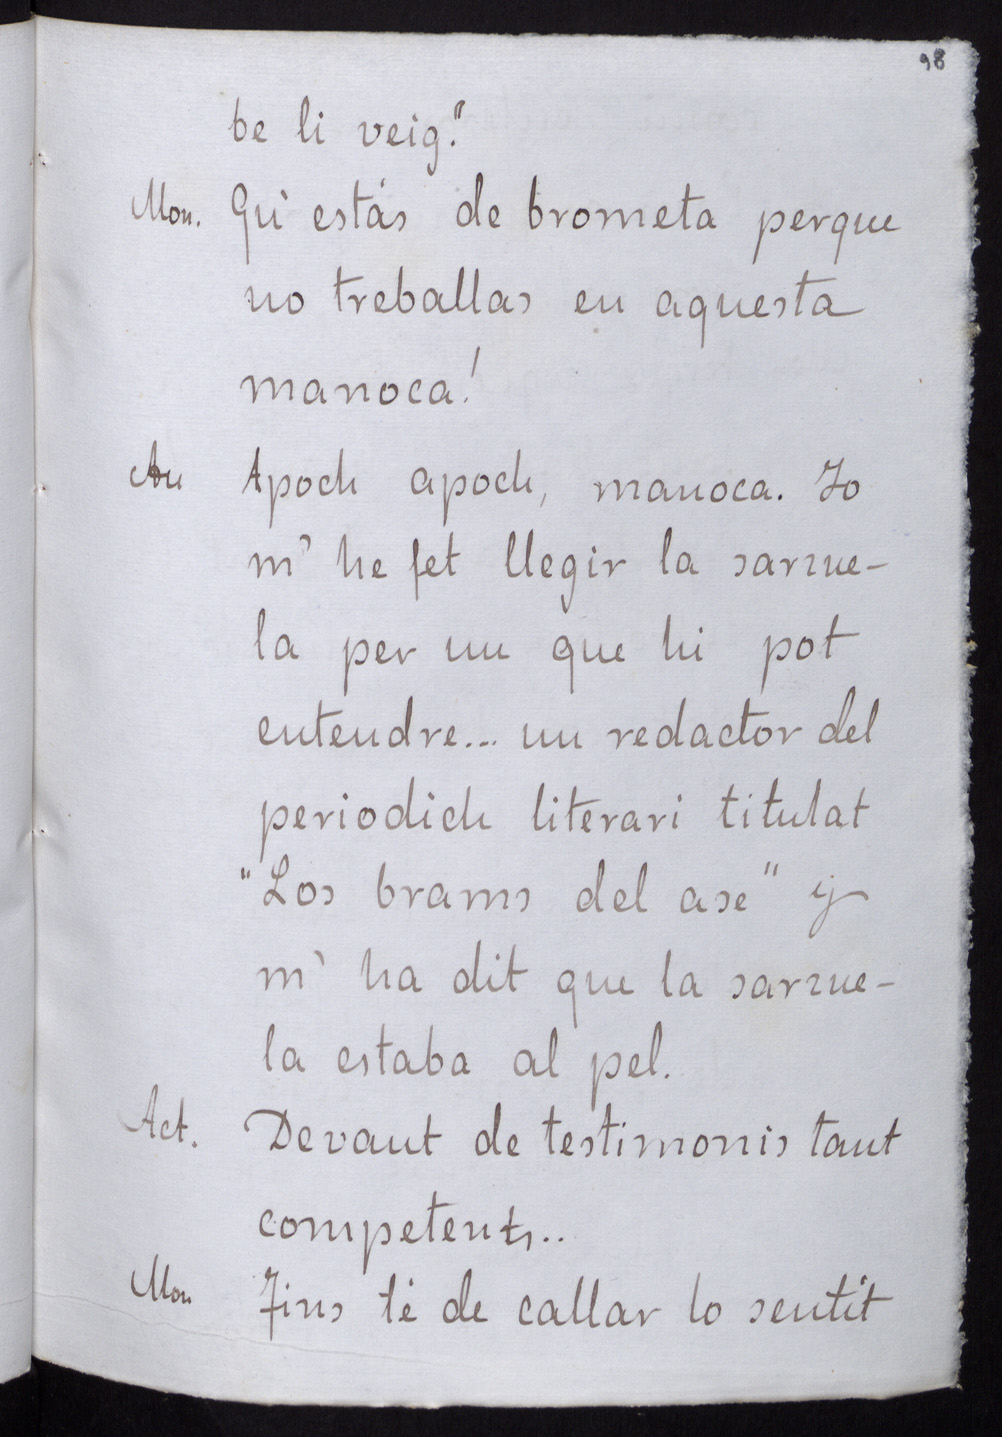 98
be li veig."
Mon. Qu' estás de brometa perque
no treballas en aquesta
manoca!
Au Apoch apoch, manoca. Jo
m' he fet llegir la sarzue-
la per un que hi pot
entendre... un redactor del
periodich literari titulat
"Los brams del ase" y
m' ha dit que la sarzue-
la estaba al pel.
Act. Devant de testimonis tant
competents..
Mon Fins té de callar lo sentit